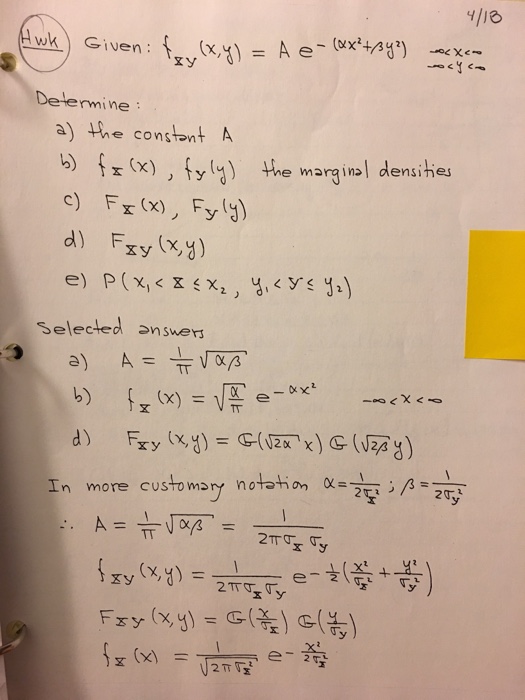 4/18
Hwk Given: f_XY(x,y) = A e^-(αx²+βy²) -∞<x<∞
-∞<y<∞
Determine:
a) the constant A
b) f_X(x), f_Y(y) the marginal densities
c) F_X(x), F_Y(y)
d) F_XY(x,y)
e) P(x₁ < X ≤ x₂, y₁ < Y ≤ y₂)
Selected answers
a) A = 1/π √αβ
b) f_X(x) = √(α/π) e^-αx² -∞<x<∞
d) F_XY(x,y) = G(√2α x) G(√2β y)
In more customary notation α = 1/2σ_X² ; β = 1/2σ_y²
∴ A = 1/π √αβ = 1/2πσ_X σ_y
f_XY(x,y) = 1/2πσ_Xσ_y e^-½(x²/σ_X² + y²/σ_y²)
F_XY(x,y) = G(x/σ_X) G(y/σ_y)
f_X(x) = 1/√2πσ_X² e^-x²/2σ_X²